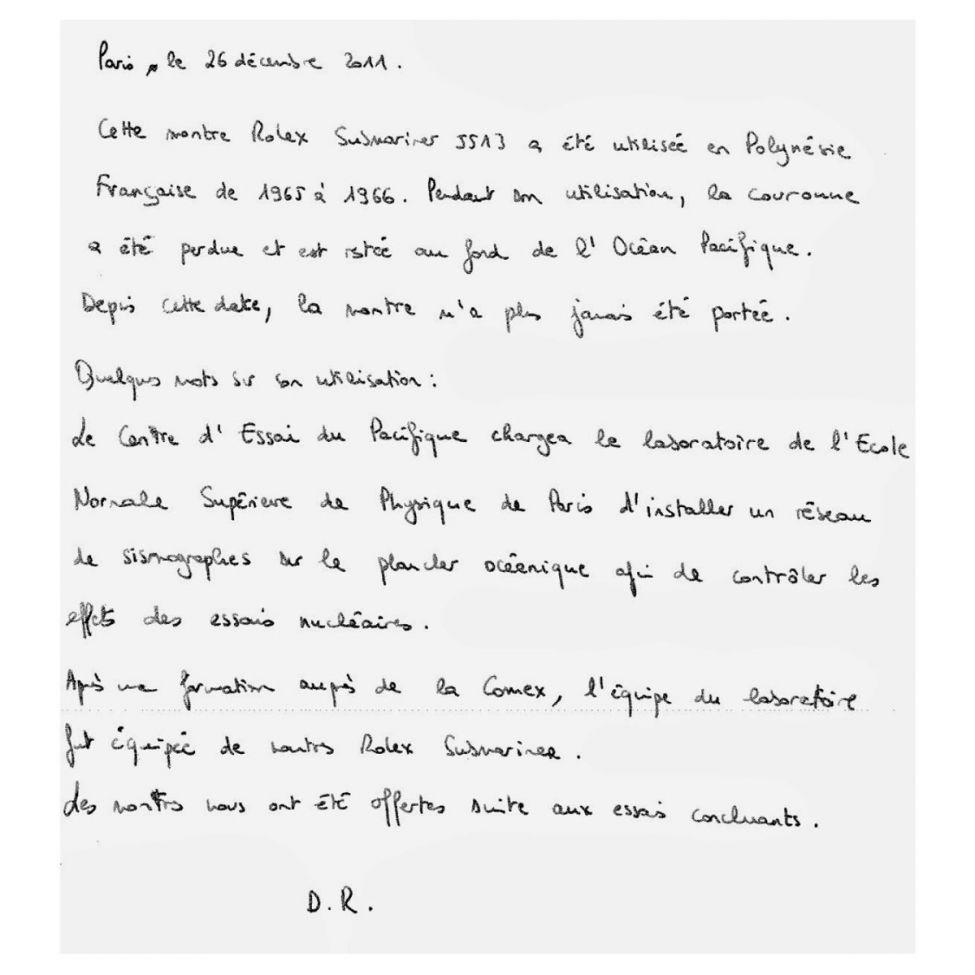 Paris, le 26 décembre 2011.
Cette montre Rolex Submariner 5513 a été utilisée en Polynésie
Française de 1965 à 1966. Pendant son utilisation, la couronne
a été perdue et est restée au fond de l'Océan Pacifique.
Depuis cette date, la montre n'a plus jamais été portée.
Quelques mots sur son utilisation :
Le Centre d'Essai du Pacifique chargea le laboratoire de l'Ecole
Normale Supérieure de Physique de Paris d'installer un réseau
de sismographes sur le plancher océénique afin de contrôler les
effets des essais nucléaires.
Après une formation auprès de la Comex, l'équipe du laboratoire
fut équipée de montres Rolex Submariner.
Les montres nous ont été offertes suite aux essais concluants.
D.R.